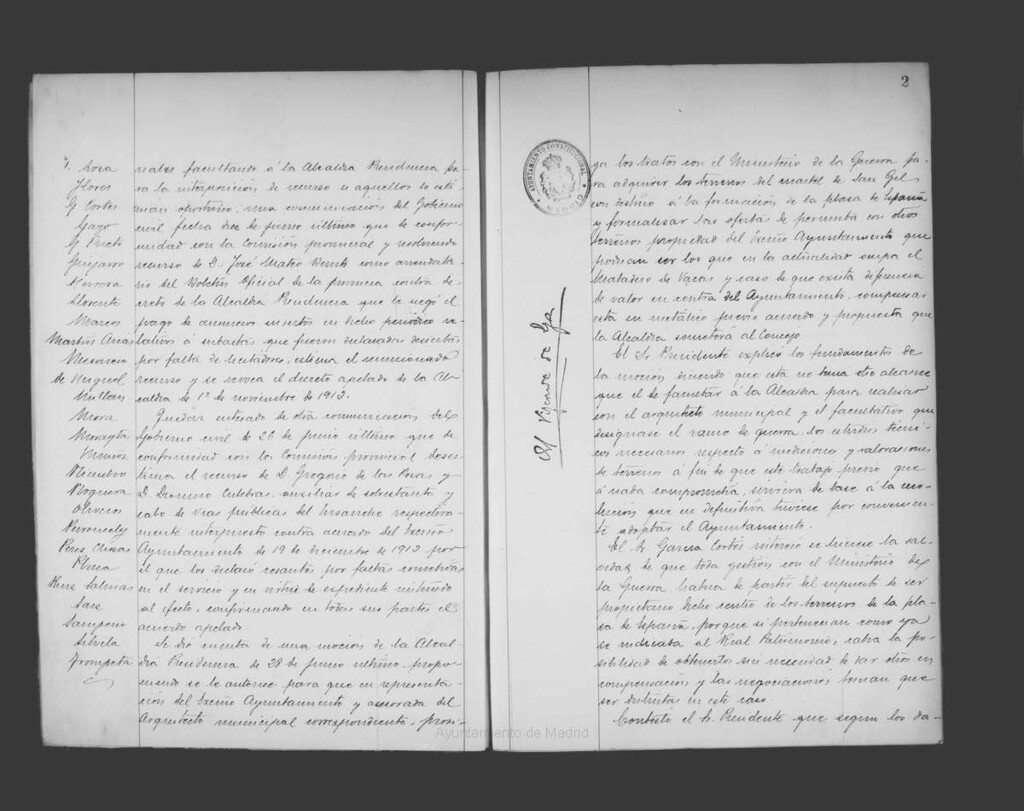 Flores
G. Cortés
Gayo
Guijarro
Herrera
Llorente
Marcos
Martín Arias
de Miguel
Millán
Mora
Morayta
Nicembro
Noguera
Oliveros
Perez Chinas
Plaza
Ruiz Salinas
Saiz
Sampeno
Silvela
Trompeta
nales facultando á la Alcaldia Presidencia pa-
ra la interposición de recurso si aquellos lo esti-
man oportuno; una comunicación del Gobierno
civil fecha diez de junio último que de confor-
midad con la Comisión provincial y resolviendo
recurso de D. José Mateo como arrendata-
rio del Boletín Oficial de la provincia contra de-
creto de la Alcaldia Presidencia que le negó el
pago de anuncios insertos en dicho periódico re-
lativos á subastas que fueron declaradas desiertas
por falta de licitadores, estima el mencionado
recurso y se revoca el decreto apelado de la Al-
caldia de 1º de noviembre de 1913.
Quedar enterado de otra comunicación del
Gobierno civil de 26 de junio último que de
conformidad con la Comisión provincial deses-
tima el recurso de D. Gregorio de las y
D. Dionisio Culebras, auxiliar de sobrestante y
cabo de vias públicas del Ensanche respectiva-
mente interpuesto contra acuerdo del Excmo
Ayuntamiento de 19 de diciembre de 1913 por
el que los declaró cesantes por faltas cometidas
en el servicio y en virtud de expediente instruido
al efecto, confirmando en todas sus partes el
acuerdo apelado.
Se dió cuenta de una moción de la Alcal-
dia Presidencia de 28 de junio último propo-
niendo se le autorice para que en representa-
ción del Excmo Ayuntamiento y asesorada del
Arquitecto municipal correspondiente, prosi-
Ayuntamiento de Madrid
El Vizconde de
AYUNTAMIENTO CONSTITUCIONAL
MADRID
2
ga los tratos con el Ministerio de la Guerra pa-
ra adquirir los terrenos del cuartel de San Gil
con destino á la formación de la plaza de España
y formalizar las ofertas de permuta con otros
terrenos propiedad del Excmo Ayuntamiento que
podrian ser los que en la actualidad ocupa el
Matadero de Vacas y caso de que exista diferencia
de valor en contra del Ayuntamiento, compensar
esta en metálico previo acuerdo y propuesta que
la Alcaldia someterá al Concejo.
El Sr. Presidente explicó los fundamentos de
la moción diciendo que esta no tenia otro alcance
que el de facultar á la Alcaldia para realizar
con el arquitecto municipal y el facultativo que
designase el ramo de guerra, los estudios técni-
cos necesarios respecto á mediciones y valoraciones
de terrenos á fin de que este trabajo previo que
á nada comprometia, sirviera de base á la reso-
lución que en definitiva tuviese por convenien-
te adoptar el Ayuntamiento.
El Sr. Garcia Cortés interesó se hiciese la sal-
vedad de que toda gestión con el Ministerio de
la Guerra habria de partir del supuesto de ser
propietario dicho centro de los terrenos de la pla-
za de España, porque si pertenecian como ya
se indicaba al Real Patrimonio, cabia la po-
sibilidad de obtenerlos sin necesidad de dar otros en
compensación y las negociaciones tenian que
ser distintas en este caso.
Contestó el Sr. Presidente que segun los da-